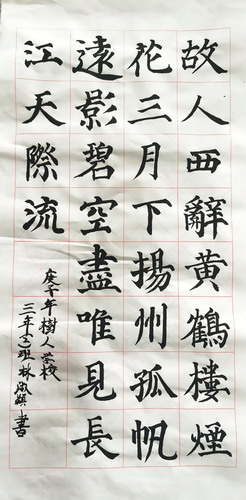 故人西辭黄鶴樓煙
花三月下揚州孤帆
遠影碧空盡唯見長
江天際流
庚子年樹人学校
三年(二)班林書